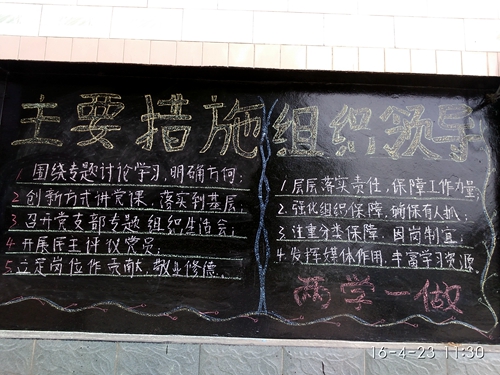 主要措施
1 围绕专题讨论学习,明确方向;
2 创新方式讲党课、落实到基层;
3 召开党支部专题组织生活会;
4 开展民主评议党员;
5 立足岗位作贡献、敬业修德。
组织领导
1 层层落实责任,保障工作力量;
2 强化组织保障,确保有人抓;
3 注重分类保障、因岗制宜;
4 发挥媒体作用,丰富学习资源
两学一做
16-4-23 11:30